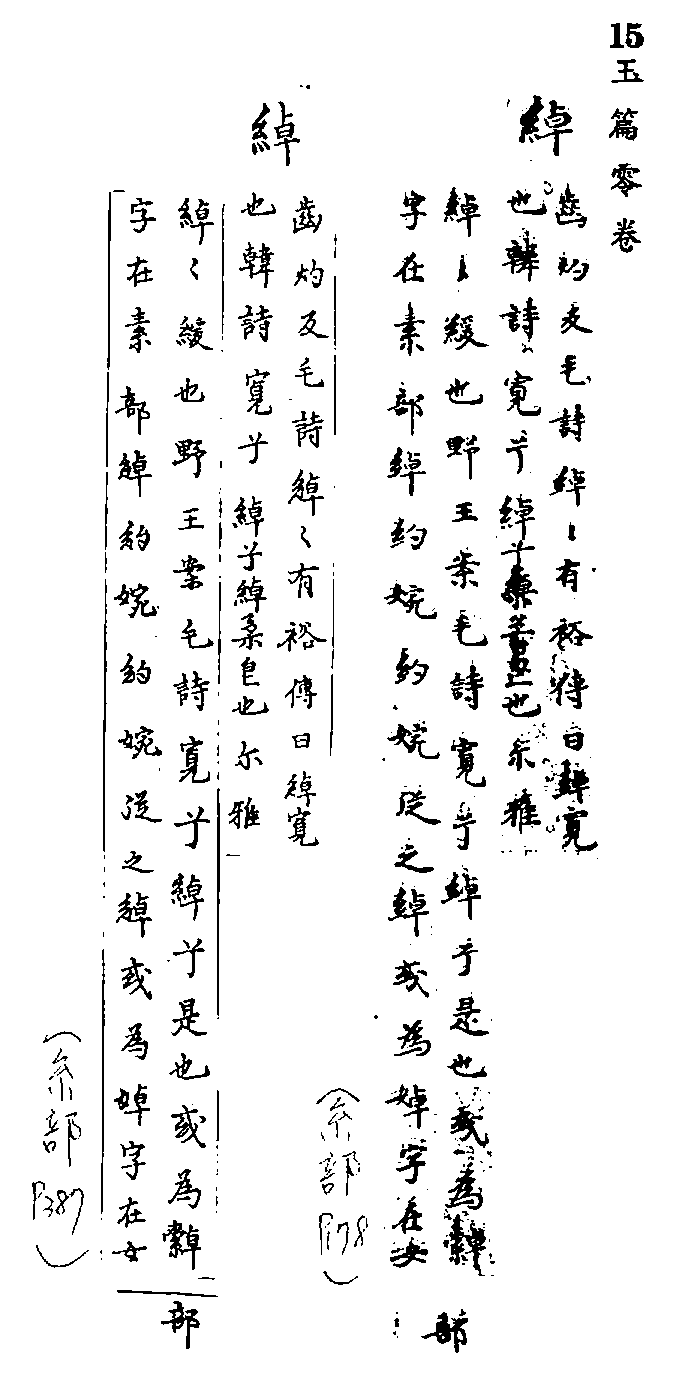 15玉篇零卷
綽
齒灼反毛詩綽〻有裕傳曰綽寬
也韓詩寬兮綽兮也尔雅
綽〻緩也野王案毛詩寬兮綽兮是也或為繛
字在素部綽約婉約婉従之綽或為婥字在女
部
(糸部P178)
綽
齒灼反毛詩綽〻有裕傳曰綽寬
也韓詩寬兮綽兮綽柔皃也尔雅
綽〻緩也野王案毛詩寬兮綽兮是也或為繛
字在素部綽約婉約婉従之綽或為婥字在女
部
(糸部P387)